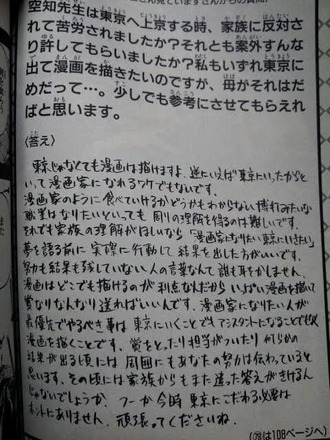 空知先生は東京へ上京する時、家族に反対さ
れて苦労されましたか?それとも案外すんな
り許してもらいましたか?私もいずれ東京に
出て漫画を描きたいのですが、母がそれはだ
めだって…。少しでも参考にさせてもらえれ
ばと思います。
〈答え〉
東京じゃなくても漫画は描けますよ。逆にいえば東京にいったからと
いって漫画家になれるワケでもないです。
漫画家のように食べていけるかどうかもわからない博打みたいな
職業はなりたいといっても周りの理解を得るのは難しいです。
それでも家族の理解がほしいなら「漫画家になりたい東京にいきたい」
夢を語る前に実際に行動して結果を出した方がいいです。
努力も結果も残していない人の言葉なんて誰も耳をかしません。
漫画はどこでも描けるのが利点なんだからいっぱい漫画描いて
賞なりなんなり送ればいいんです。漫画家になりたい人が
最優先でやるべき事は東京にいくことでもアシスタントになることでもなく
漫画を描くことです。賞をとったり担当がついたり何らかの
結果が出る頃には周囲にもあなたの努力は伝わっていると
思います。その頃には家族からもまた違った答えがきけるん
じゃないでしょうか。つーか今時東京にこだわる必要は
ホントにありません。頑張ってくださいね。
は108ページへ)